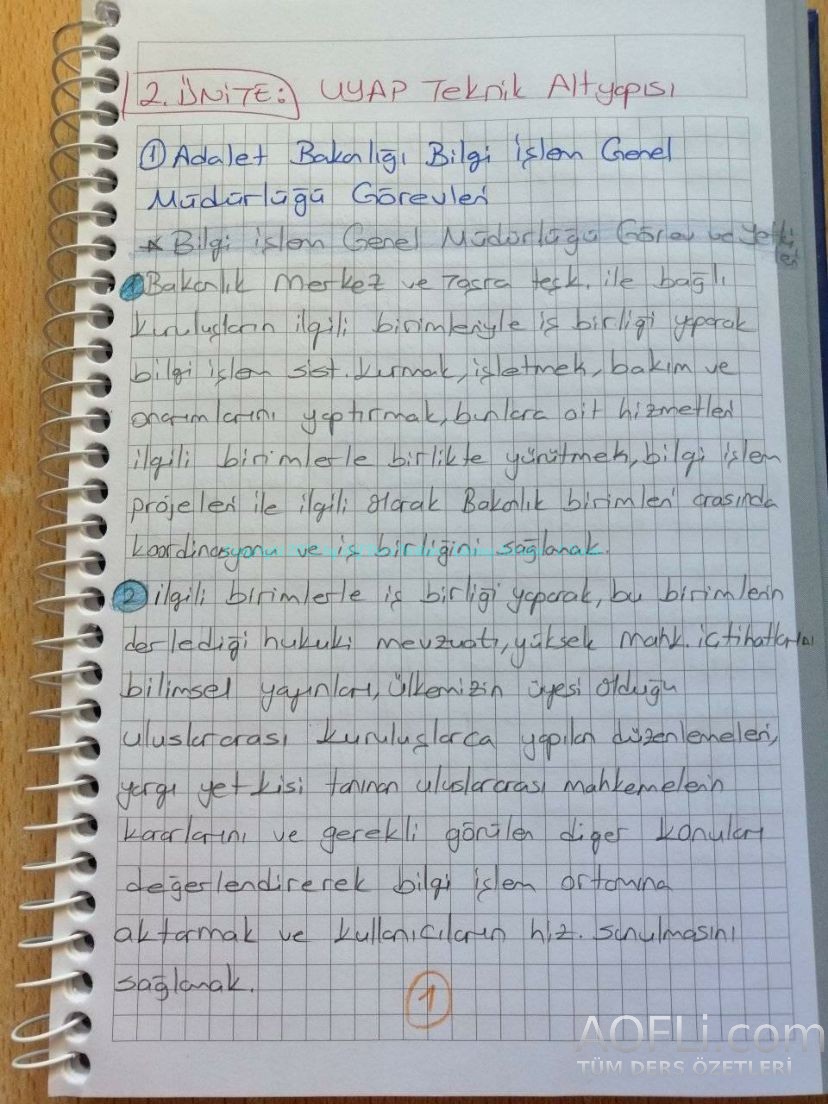 2. ÜNİTE: UYAP Teknik Altyapısı
① Adalet Bakanlığı Bilgi işlem Genel
Müdürlüğü Görevleri
* Bilgi işlem Genel Müdürlüğü Görev ve Yetkileri
1 Bakanlık merkez ve Taşra teşk. ile bağlı
kuruluşların ilgili birimleriyle iş birliği yaparak
bilgi işlem sist. kurmak, işletmek, bakım ve
onarımlarını yaptırmak, bunlara ait hizmetleri
ilgili birimlerle birlikte yürütmek, bilgi işlem
projeleri ile ilgili olarak Bakanlık birimleri arasında
koordinasyonu ve iş birliğini sağlamak.
2 ilgili birimlerle iş birliği yaparak, bu birimlerin
derlediği hukuki mevzuatı, yüksek mahk. içtihatlarını
bilimsel yayınları, ülkemizin üyesi olduğu
uluslararası kuruluşlarca yapılan düzenlemeleri,
yargı yetkisi tanınan uluslararası mahkemelerin
kararlarını ve gerekli görülen diger konuları
değerlendirerek bilgi işlem ortamına
aktarmak ve kullanıcıların hiz. sunulmasını
sağlamak.
1
AOFLi.com
TÜM DERS ÖZETLERİ